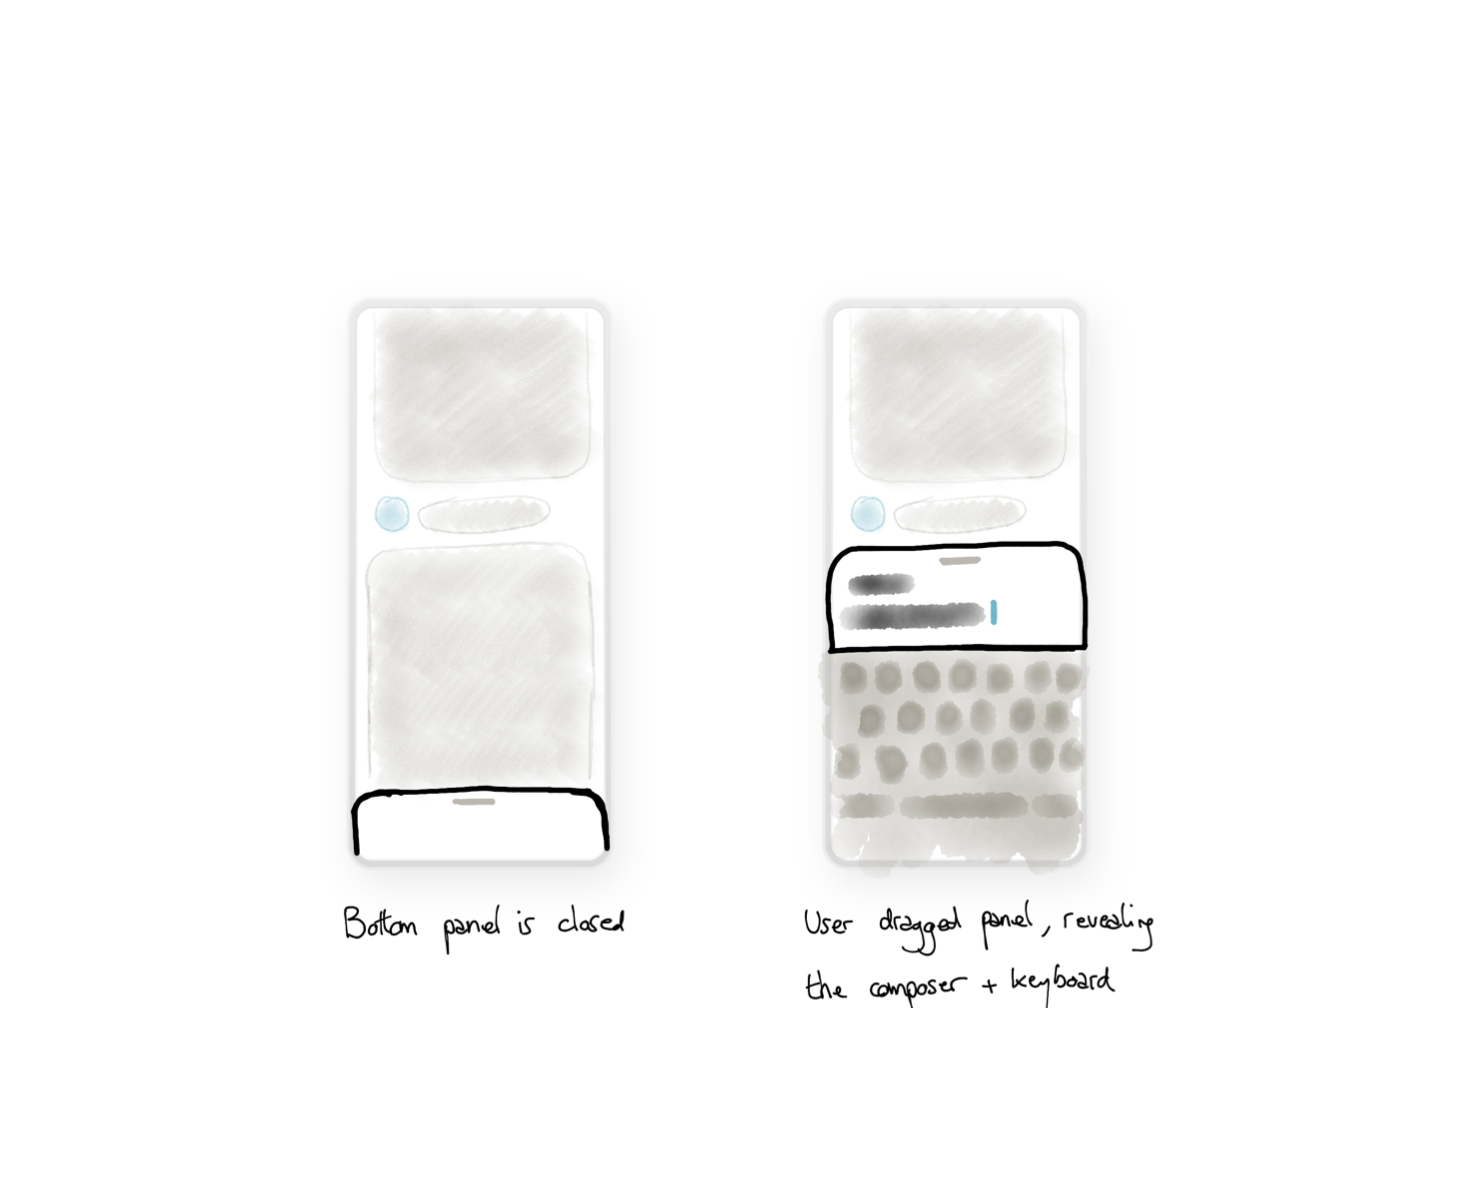 Bottom panel is closed
User dragged panel, revealing
the composer + keyboard